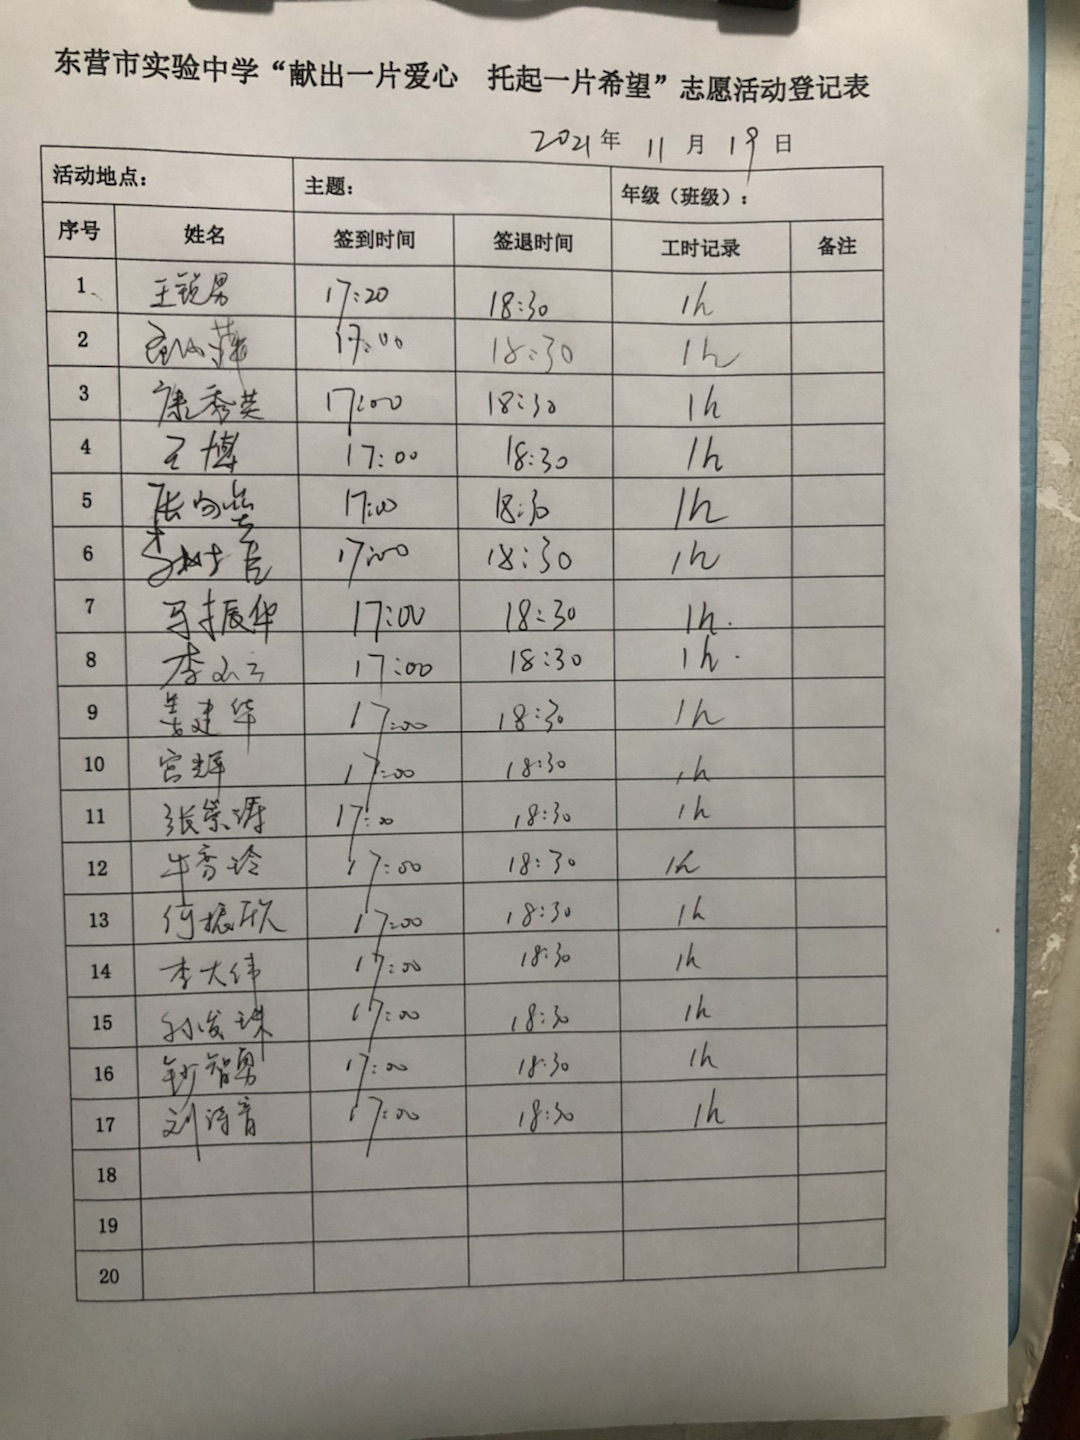 东营市实验中学“献出一片爱心 托起一片希望”志愿活动登记表
2021年 11月 19日
活动地点： 主题： 年级（班级）：
序号 姓名 签到时间 签退时间 工时记录 备注
1 王锐男 17:20 18:30 1h
2 17:00 18:30 1h
3 康秀英 17:00 18:30 1h
4 王博 17:00 18:30 1h
5 张 17:00 18:30 1h
6 17:00 18:30 1h
7 马振华 17:00 18:30 1h.
8 李 17:00 18:30 1h.
9 姜建华 17:00 18:30 1h
10 宫辉 17:00 18:30 1h
11 张崇涛 17:00 18:30 1h
12 牛秀玲 17:00 18:30 1h
13 何振欣 17:00 18:30 1h
14 李大伟 17:00 18:30 1h
15 孙俊珠 17:00 18:30 1h
16 智勇 17:00 18:30 1h
17 刘诗音 17:00 18:30 1h
18
19
20